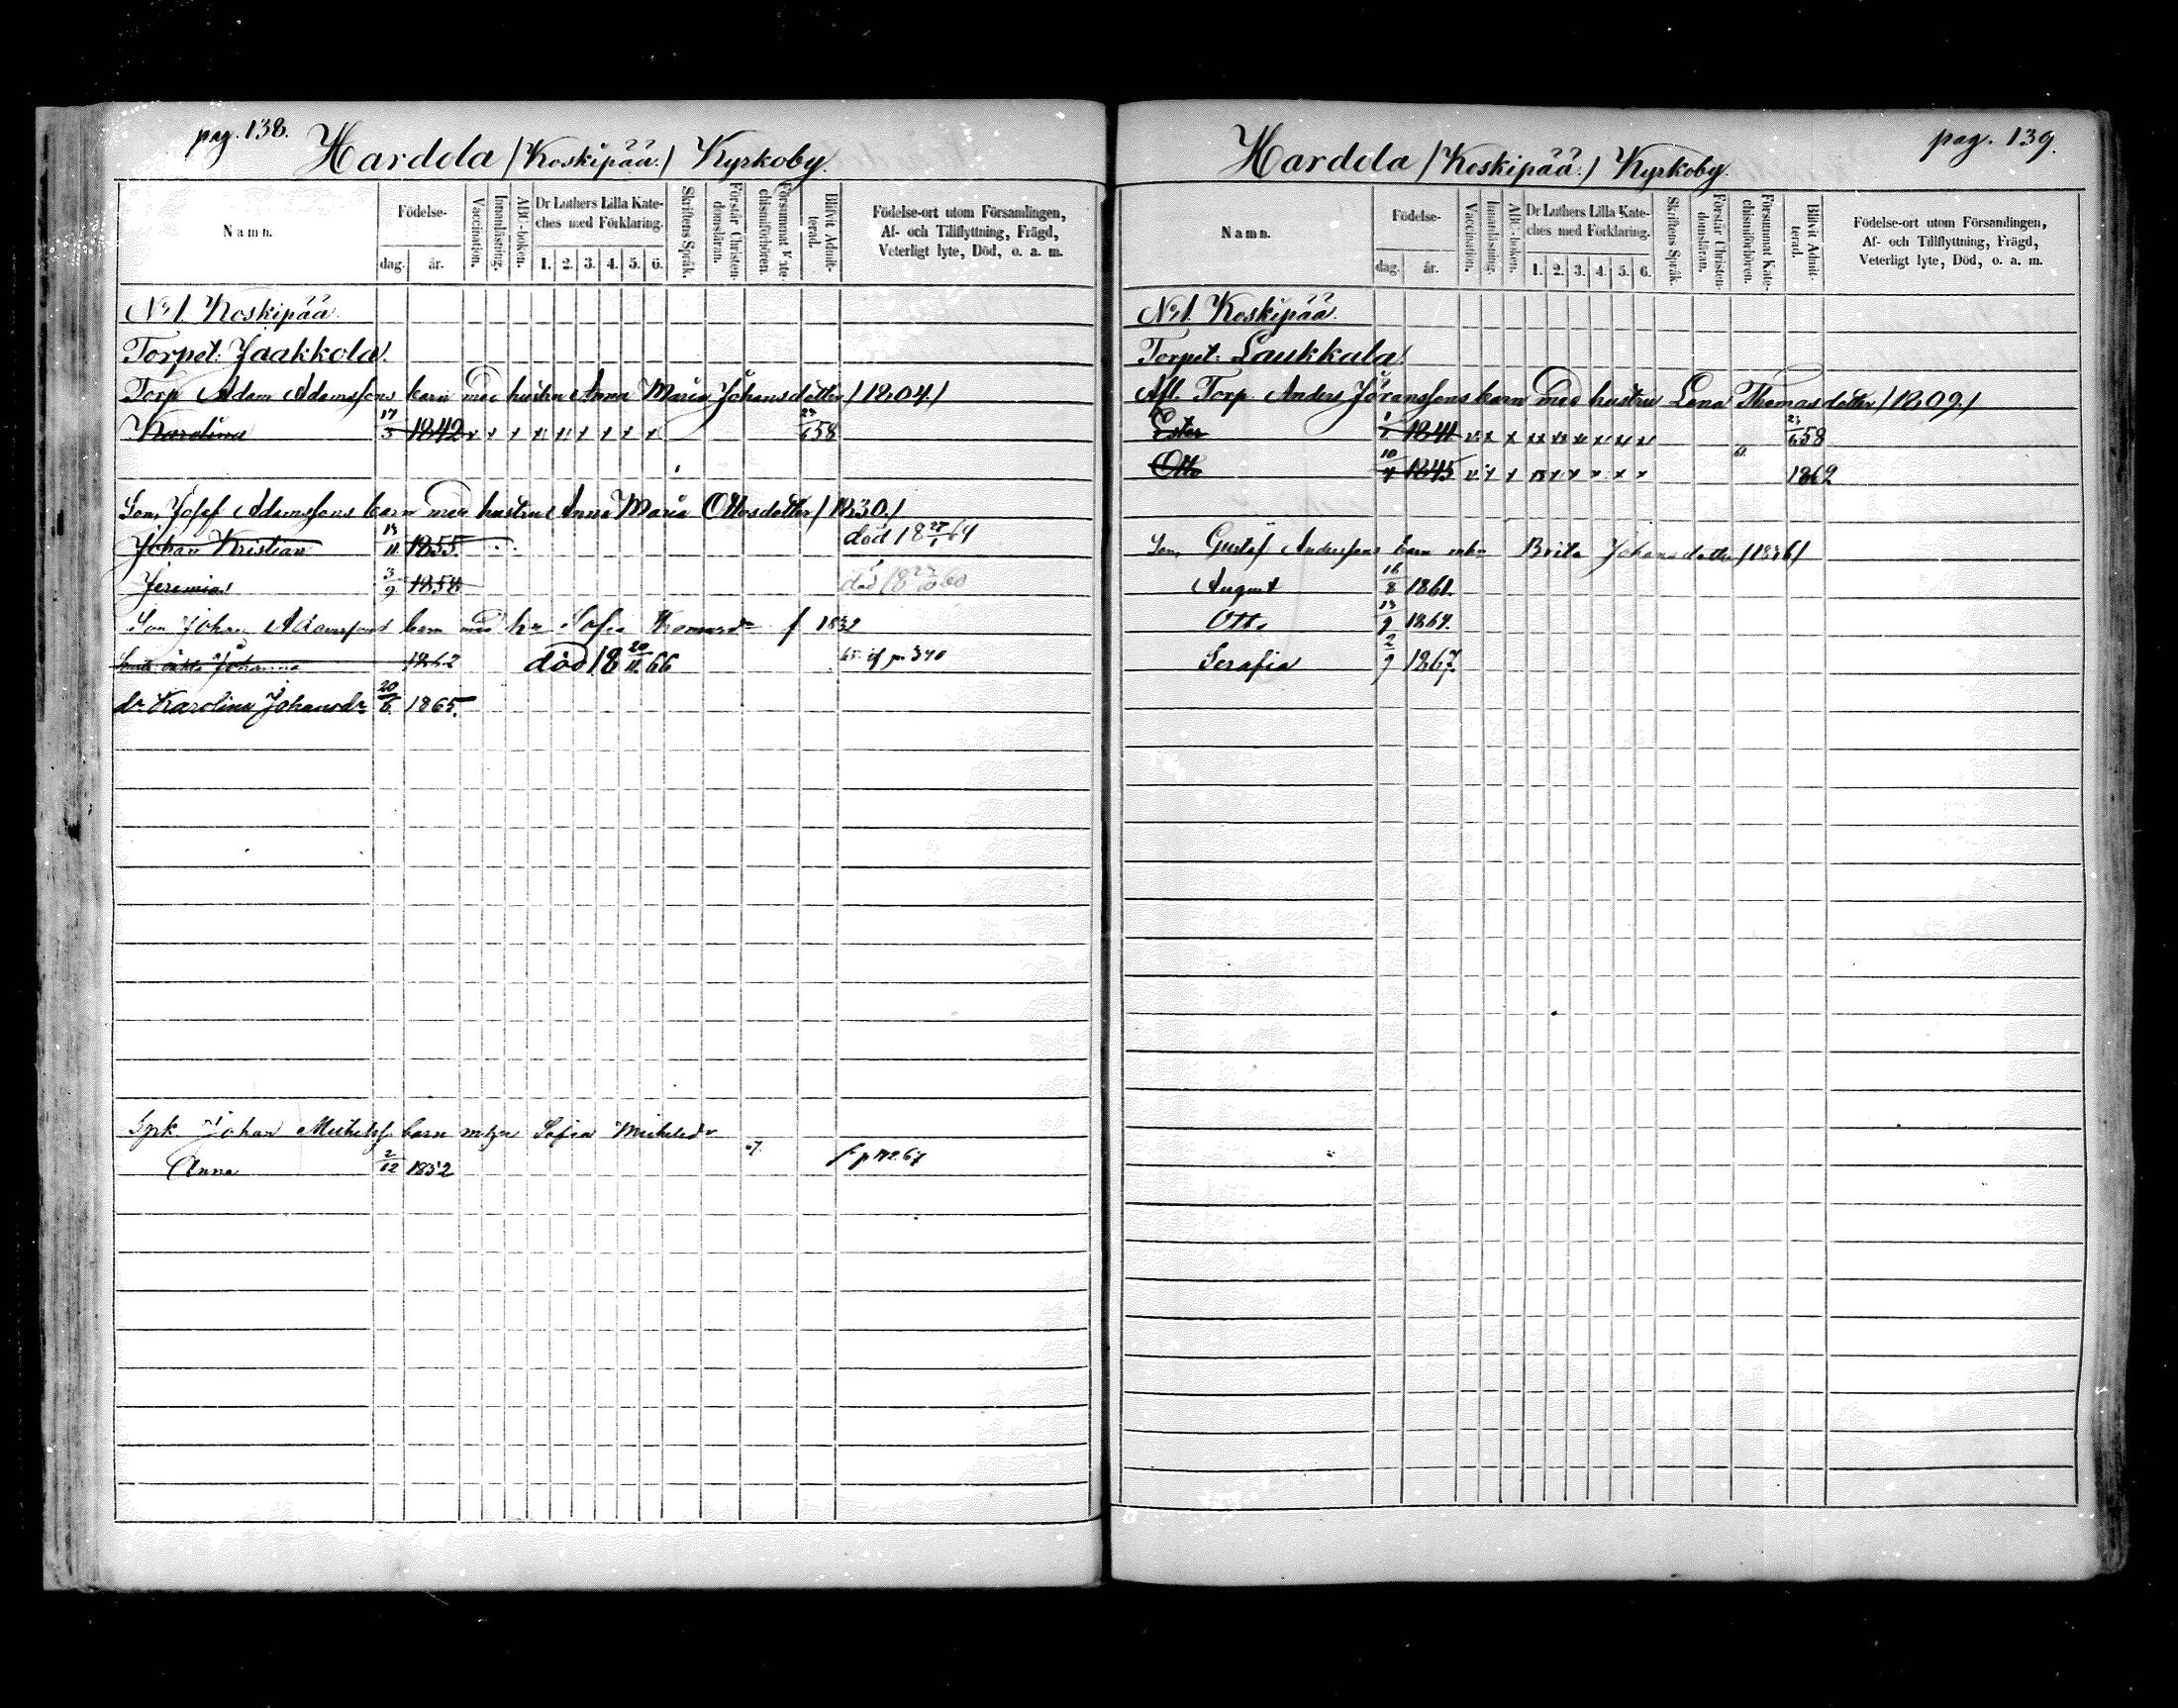 pag. 138.
Hardola /Koskipää./ Kyrkoby.
Namn.
Födelse-
dag. år.
Vaccination.
Innanläsning.
ABC-boken.
Dr Luthers Lilla Kate-
ches med Förklaring.
1. 2. 3. 4. 5. 6.
Skriftens Språk.
Förstår Christen-
domsläran.
Försummat Kate-
chismiförhören.
Blifvit Admit-
terad.
Födelse-ort utom Församlingen,
Af- och Tillflyttning, Frägd,
Veterligt lyte, Död, o. a. m.
No 1. Koskipää.
Torpet: Jaakkola.
Torp Adam Adamssons barn med hustru Anna Maria Johansdotter /1804./
Karolina 17/3 1842 58
Son, Josef Adamssons barn med hustru Anna Maria Ottosdotter /1830./
Johan Kristian 13/11 1855. död 18 27/1 64
Jeremias 3/9 1858 död 18 60
Son Johan Adamssons barn med hu Sofia f 1832
Johanna 1862 död 18 20/11 66
dr Karolina Johansdr 20/6 1865.
Johan Michelss. barn Sofia Michelsdr
Anna 2/12 1852 67
pag. 139.
Hardola /Koskipää./ Kyrkoby.
Namn.
Födelse-
dag. år.
Vaccination.
Innanläsning.
ABC-boken.
Dr Luthers Lilla Kate-
ches med Förklaring.
1. 2. 3. 4. 5. 6.
Skriftens Språk.
Förstår Christen-
domsläran.
Försummat Kate-
chismiförhören.
Blifvit Admit-
terad.
Födelse-ort utom Församlingen,
Af- och Tillflyttning, Frägd,
Veterligt lyte, Död, o. a. m.
No 1. Koskipää.
Torpet: Laukkala.
Afl. Torp. Anders Jöranssons barn med hustru Lena Thomasdotter /1809./
Ester 1841 58
Otto 10/4 1845 1862
Son, Gustaf Anderssons barn Brita Johansdotter /1836/
August 16/8 1861.
Otto 13/9 1864.
Serafia 2/9 1867.